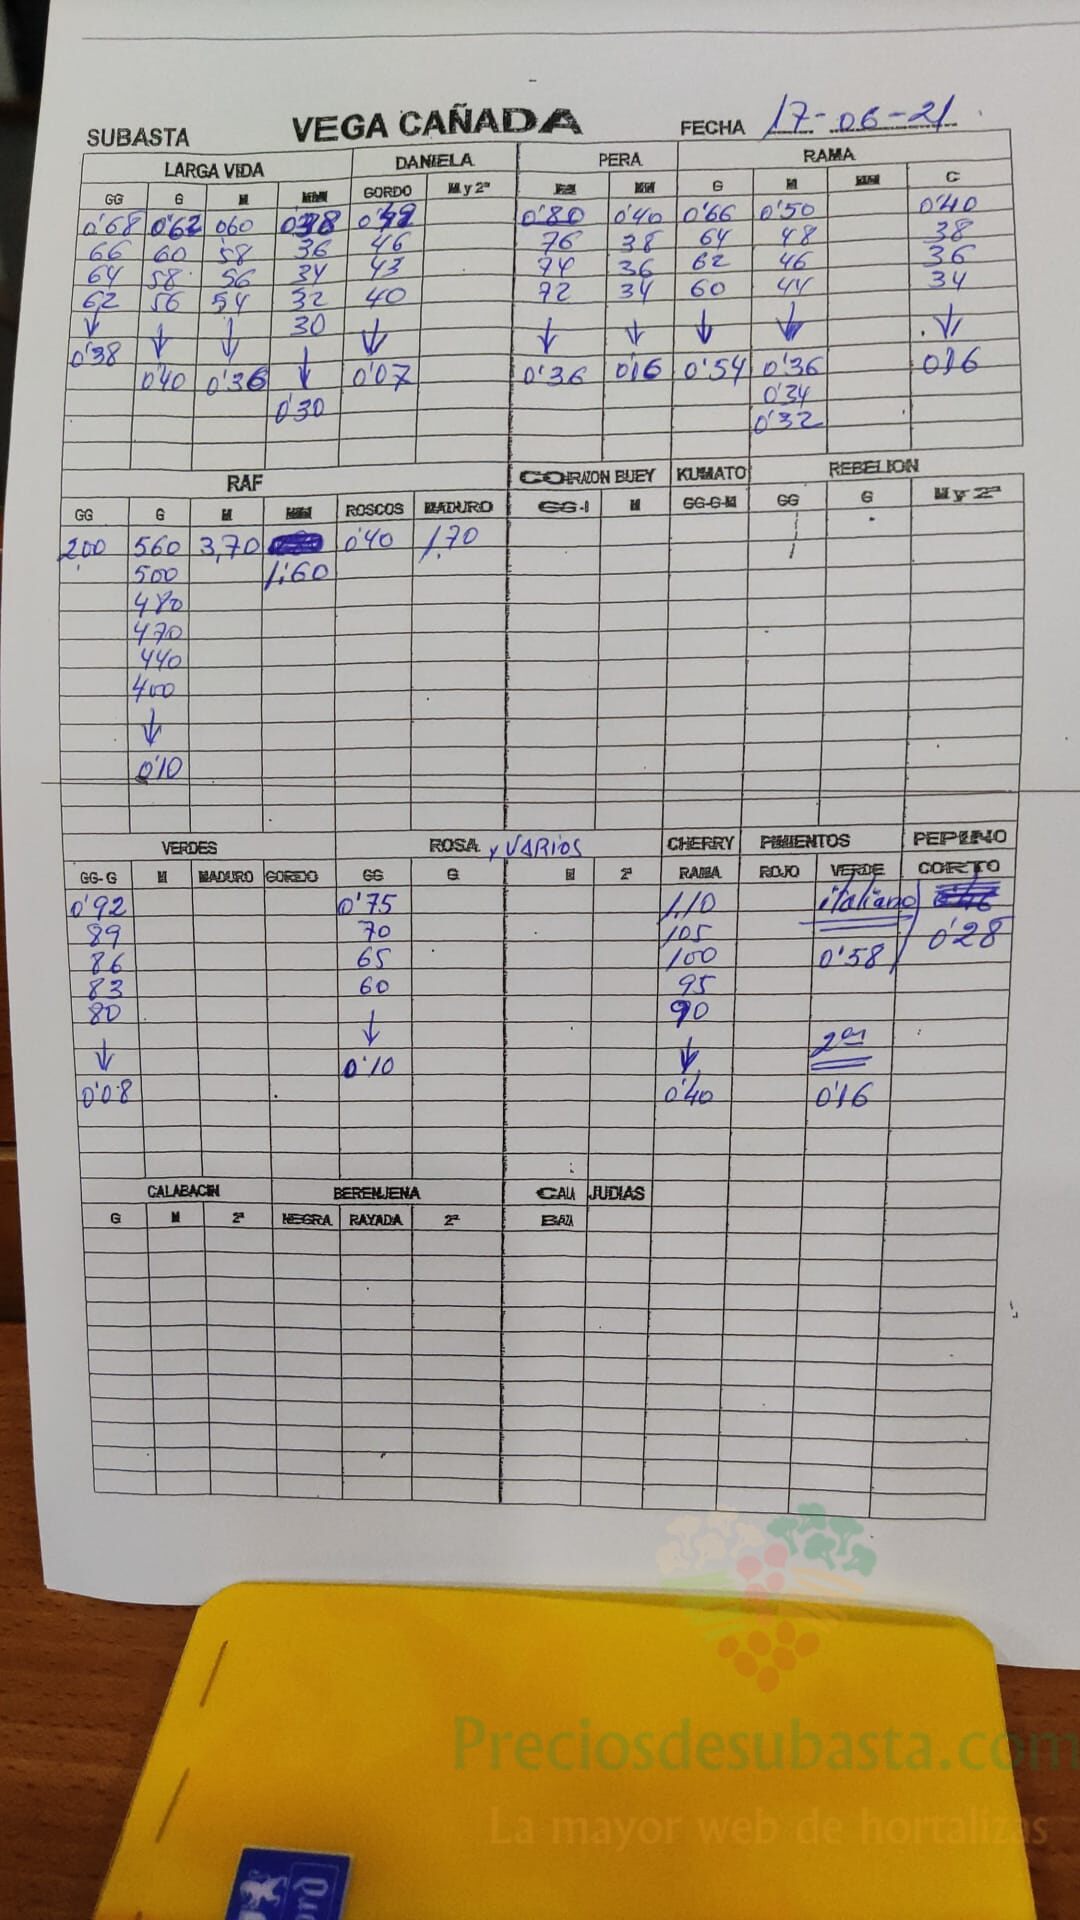 SUBASTA VEGA CAÑADA FECHA 17-06-21
LARGA VIDA DANIELA PERA RAMA
GG G M MM GORDO M y 2ª G M MM C
0'68 0'62 060 0'38 0'49 0'80 0'40 0'66 0'50 0'40
66 60 58 36 46 76 38 64 48 38
64 58 56 34 43 74 36 62 46 36
62 56 54 32 40 72 34 60 44 34
↓ ↓ ↓ 30 ↓ ↓ ↓ ↓ ↓ ↓
0'38 0'40 0'36 ↓ 0'07 0'36 0'16 0'54 0'36 0'16
0'30 0'34
0'32
RAF CORAZON BUEY KUMATO REBELION
GG G M MM ROSCOS MADURO GG-I M GG-G-M GG G M y 2ª
2,00 560 3,70 0'40 1,70
500 1,60
480
470
440
400
↓
0'10
VERDES ROSA y VARIOS CHERRY PIMIENTOS PEPINO
GG-G M MADURO GORDO GG G M 2ª RAMA ROJO VERDE CORTO
0'92 0'75 1,10 italiano
89 70 105 0'28
86 65 100 0'58
83 60 95
80 90
↓ ↓ ↓ 2as
0'08 0'10 0'40 0'16
CALABACIN BERENJENA CALA JUDIAS
G M 2ª NEGRA RAYADA 2ª BAZA
Preciosdesubasta.com
La mayor web de hortalizas